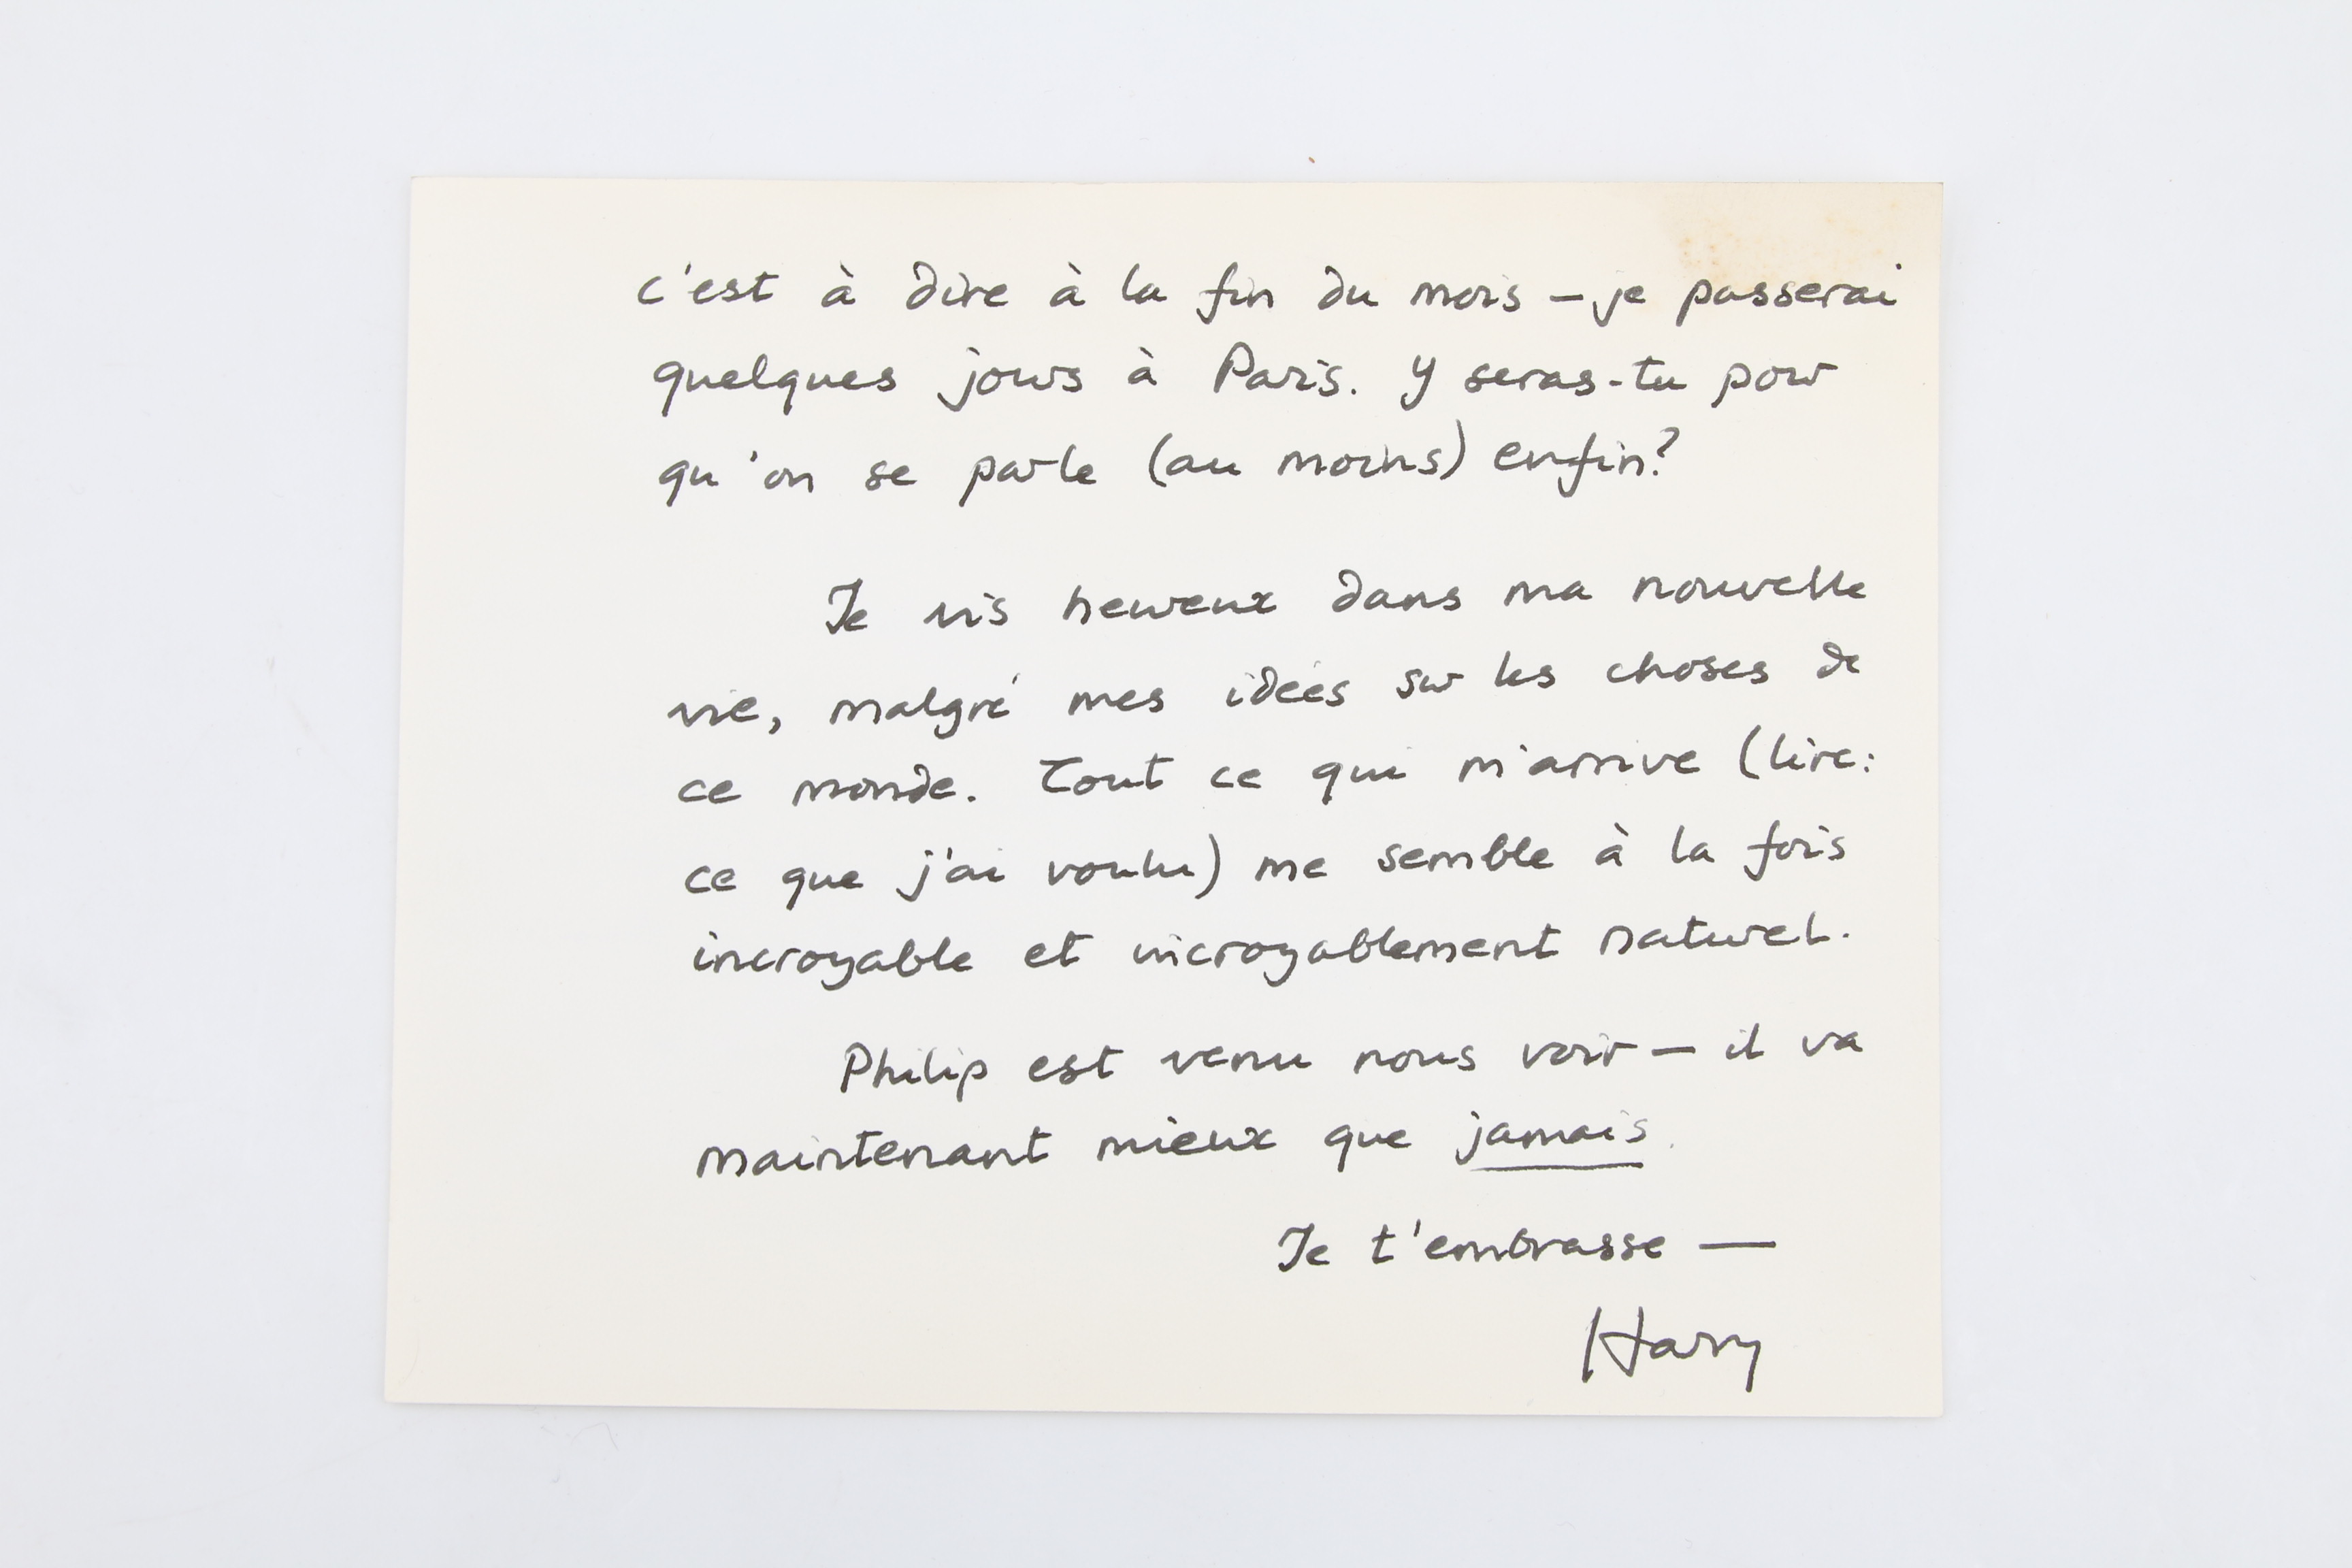 c'est à dire à la fin du mois – je passerai
quelques jours à Paris. Y seras-tu pour
qu'on se parle (au moins) enfin?
Je vis heureux dans ma nouvelle
vie, malgré mes idées sur les choses de
ce monde. Tout ce qui m'arrive (lire:
ce que j'ai voulu) me semble à la fois
incroyable et incroyablement naturel.
Philip est venu nous voir – il va
maintenant mieux que jamais.
Je t'embrasse —
Harry